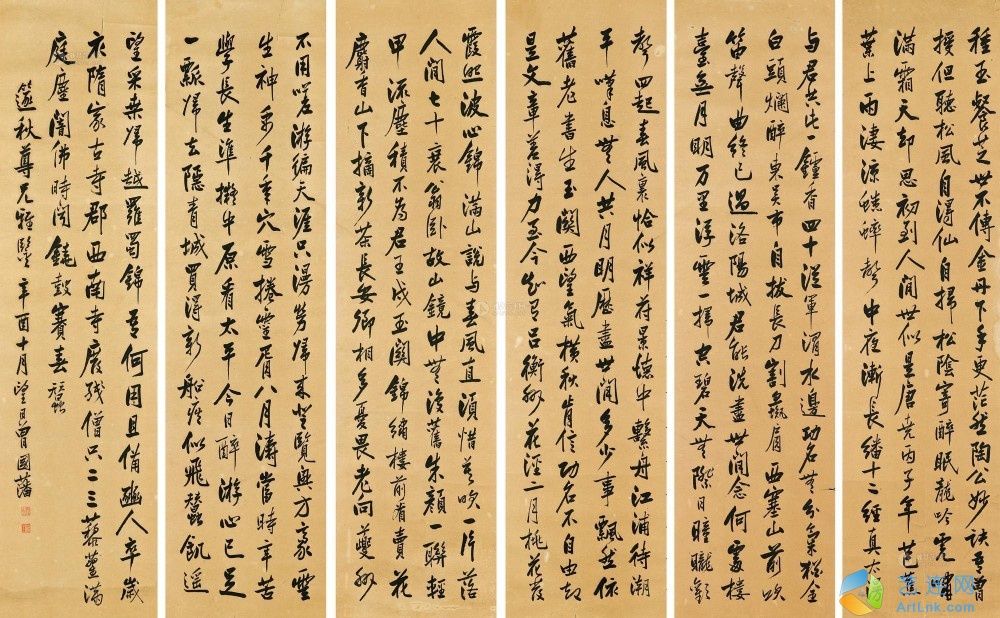 種玉餐芝世不傳金丹下手更茫然陶公妙訣吾曾
授但聽松風自得仙自掃松陰寄醉眠龍吟虎嘯
滿霜天却思初到人間世似是唐堯丙子年芭蕉
葉上雨淒涼蟋蟀聲中夜漸長繙十二經真太
与君共此一鑪香四十從軍渭水邊功名無分氣猶全
白頭爛醉東吳市自拔長刀割彘肩西塞山前吹
笛聲曲終已過洛陽城君能洗盡世間念何處樓
臺無月明万里浮雲一掃空碧天無際日曈曨歌
聲四起春風裏恰似祥符景德中繫舟江浦待潮
平嘆息無人共月明歷盡世間多少事飄然依
舊老書生玉關西望氣橫秋肯信功名不自由却
是文章差得力至今知有呂衡州花涇二月桃花發
霞照波心錦滿山說与春風直須惜莫吹一片落
人間七十衰翁卧故山鏡中無復舊朱顏一聯輕
甲流塵積不為君王戍玉關錦繡樓前看賣花
麝香山下摘新茶長安卿相多憂畏老向夔州
不用嗟游徧天涯只漫勞歸來登覽興方豪雲
生神禹千年穴雪捲靈胥八月濤當時辛苦
學長生準擬中原看太平今日醉游心已足
一瓢歸去隱青城買得新船疾似飛蠶飢遥
望采桑歸越羅蜀錦吾何用且備豳人卒歲
衣隋家古寺郡西南寺廢殘僧只二三藜藿滿
庭塵闇佛時聞鐃鼓賽春蠶
篴秋尊兄雅鑒辛酉十月望日曾國藩
艺连网
ArtLnk.com